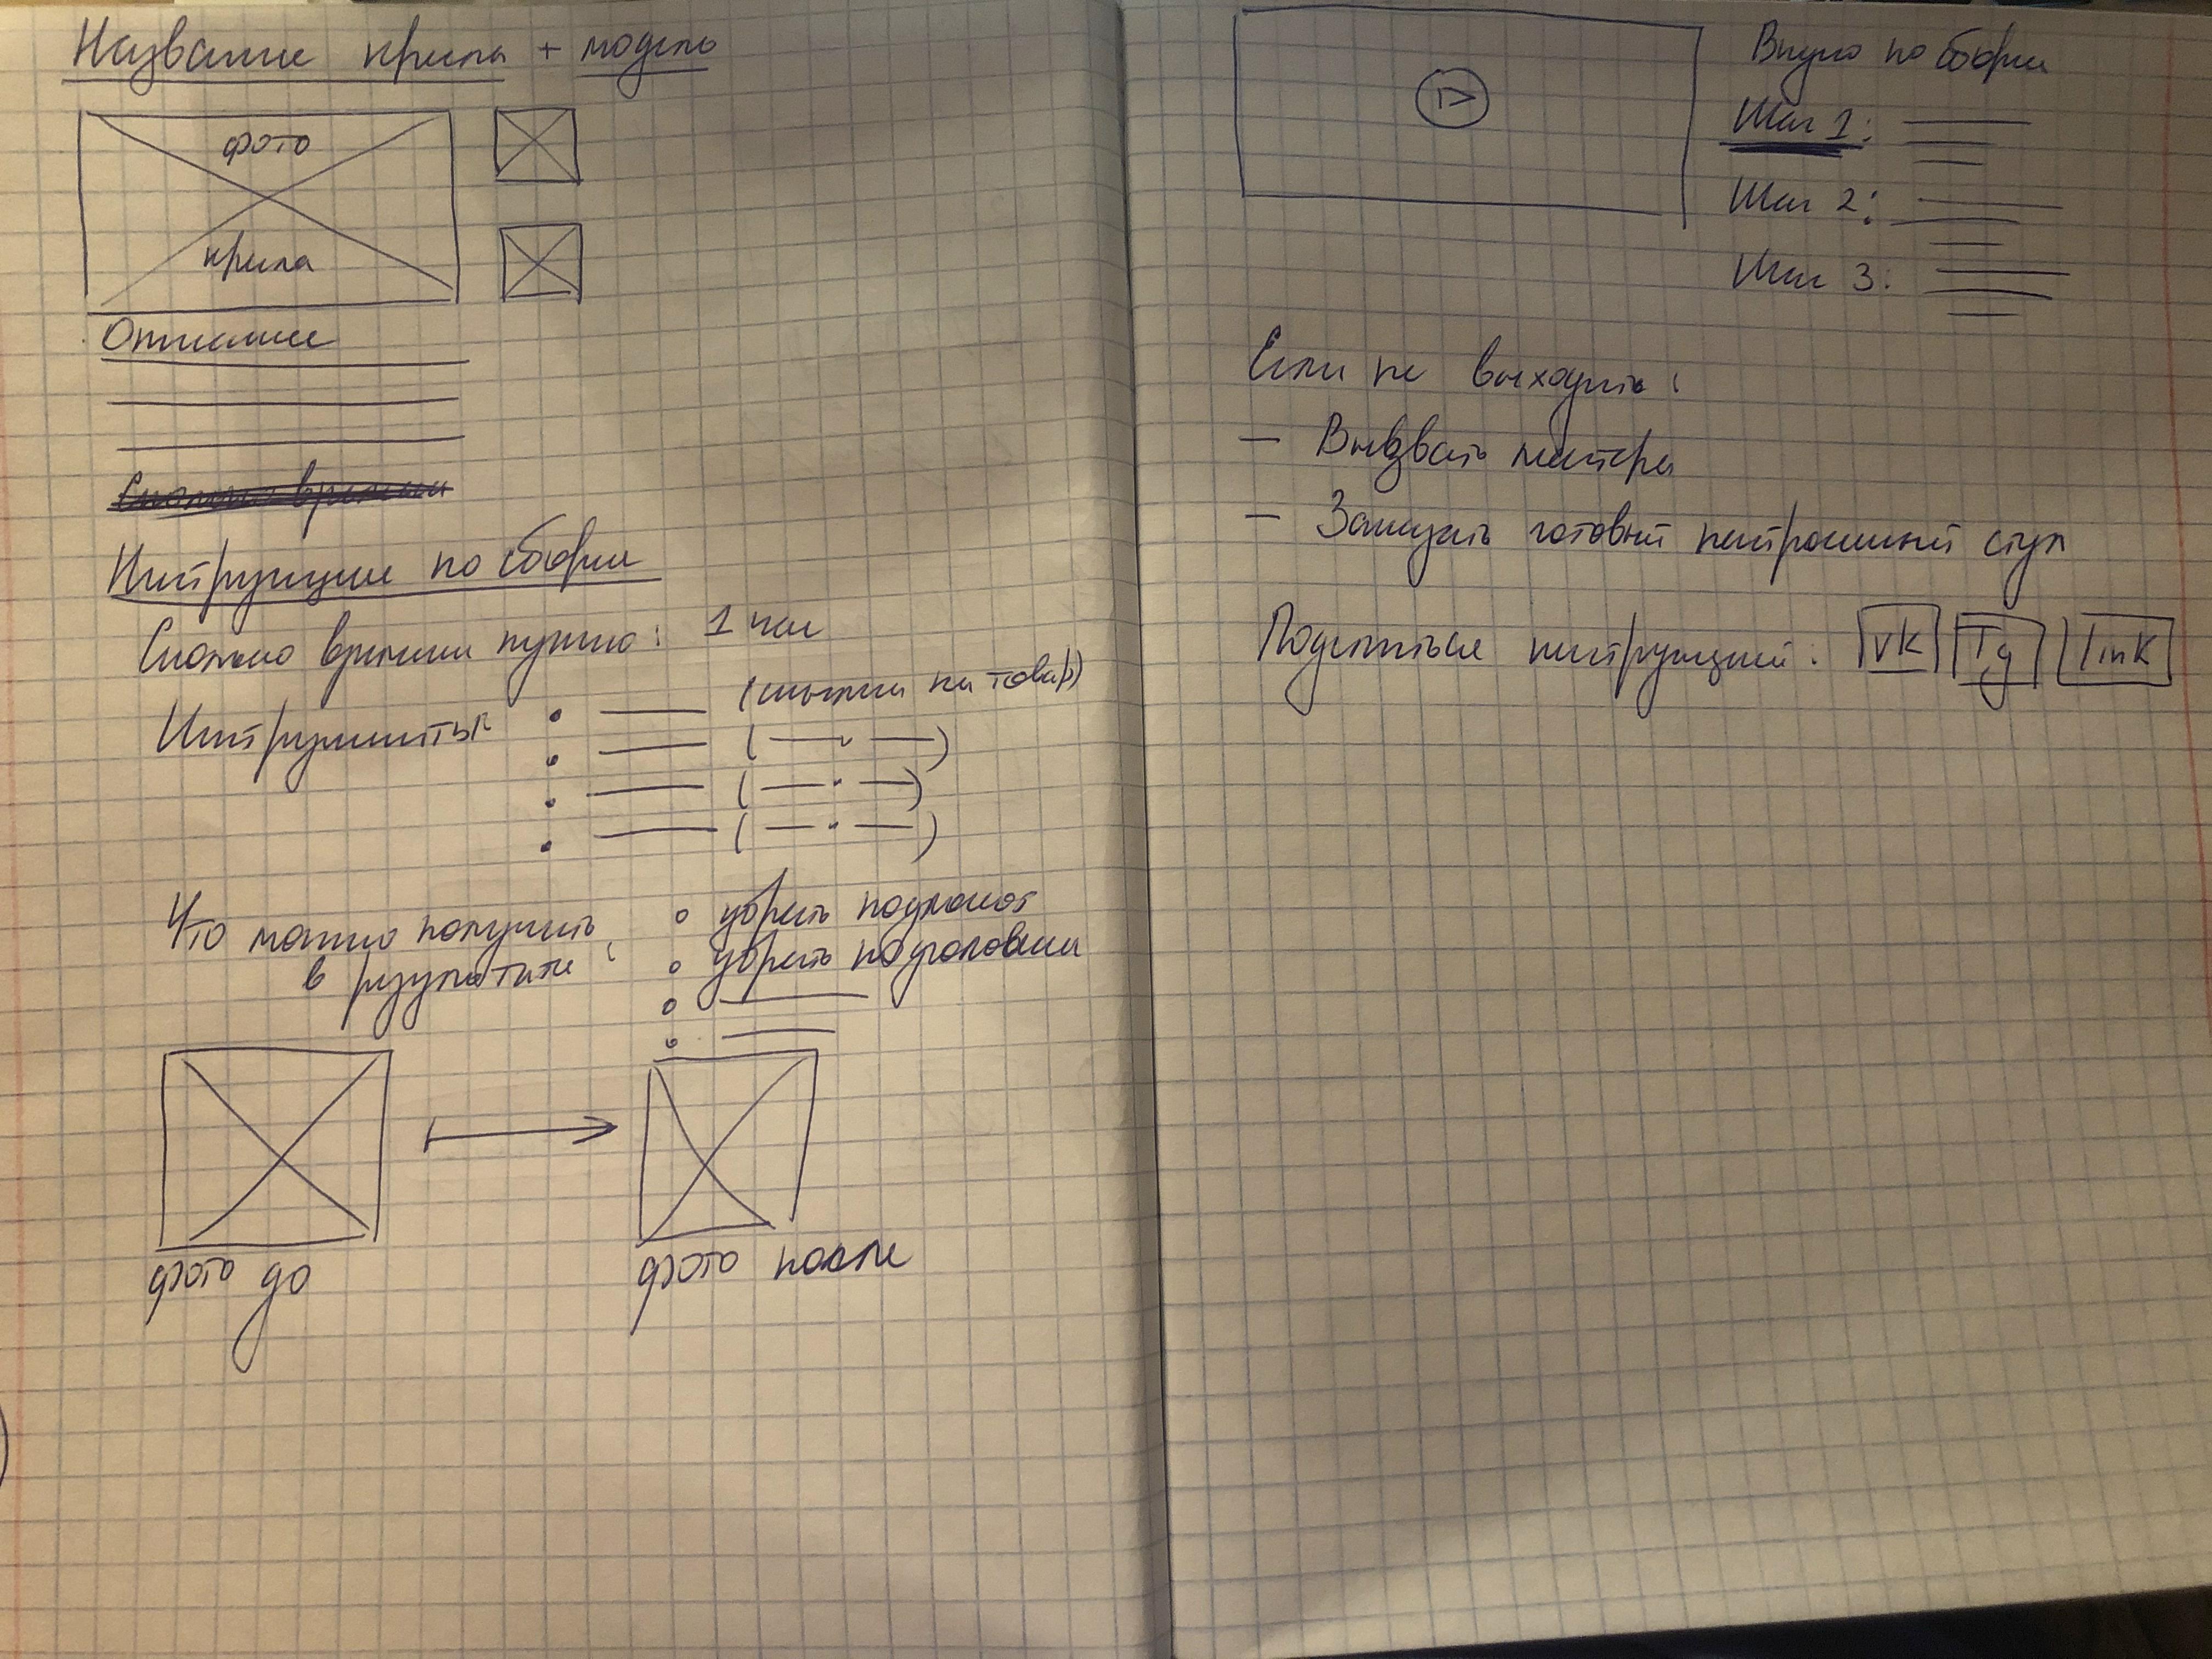 Название кресла + модель
фото
кресла
Описание
Сколько времени
Инструкция по сборке
Сколько времени нужно: 1 час
Инструменты:
(ссылки на товар)
Что можно получить
в результате:
убрать подлокот
убрать подголовник
фото до
фото после
Видео по сборке
Шаг 1:
Шаг 2:
Шаг 3:
Если не выходит:
- Вызвать мастера
- Заказать готовый настроенный стул
Поделиться инструкцией: VK Tg link